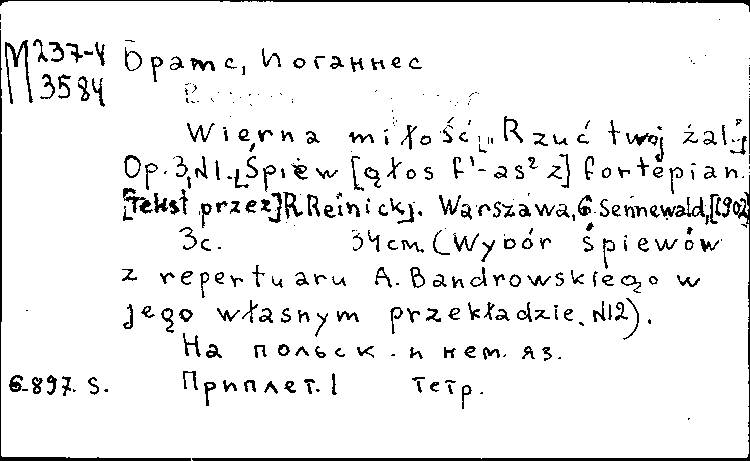 М 237-4
3584
Брамс, Иоганнес
Wierna miłość „Rzuć twoj żal"
Op. 3, N1. Śpiew [głos f¹-as² z] fortepian.
[Tekst przez] R. Reinick. Warszawa, G. Sennewald, [1902]
3с. 34см. (Wybór śpiewów
z repertuaru A. Bandrowskiego w
jego własnym przekładzie. N12).
На польск. и нем. яз.
6-897. S. Приплет. 1 тетр.